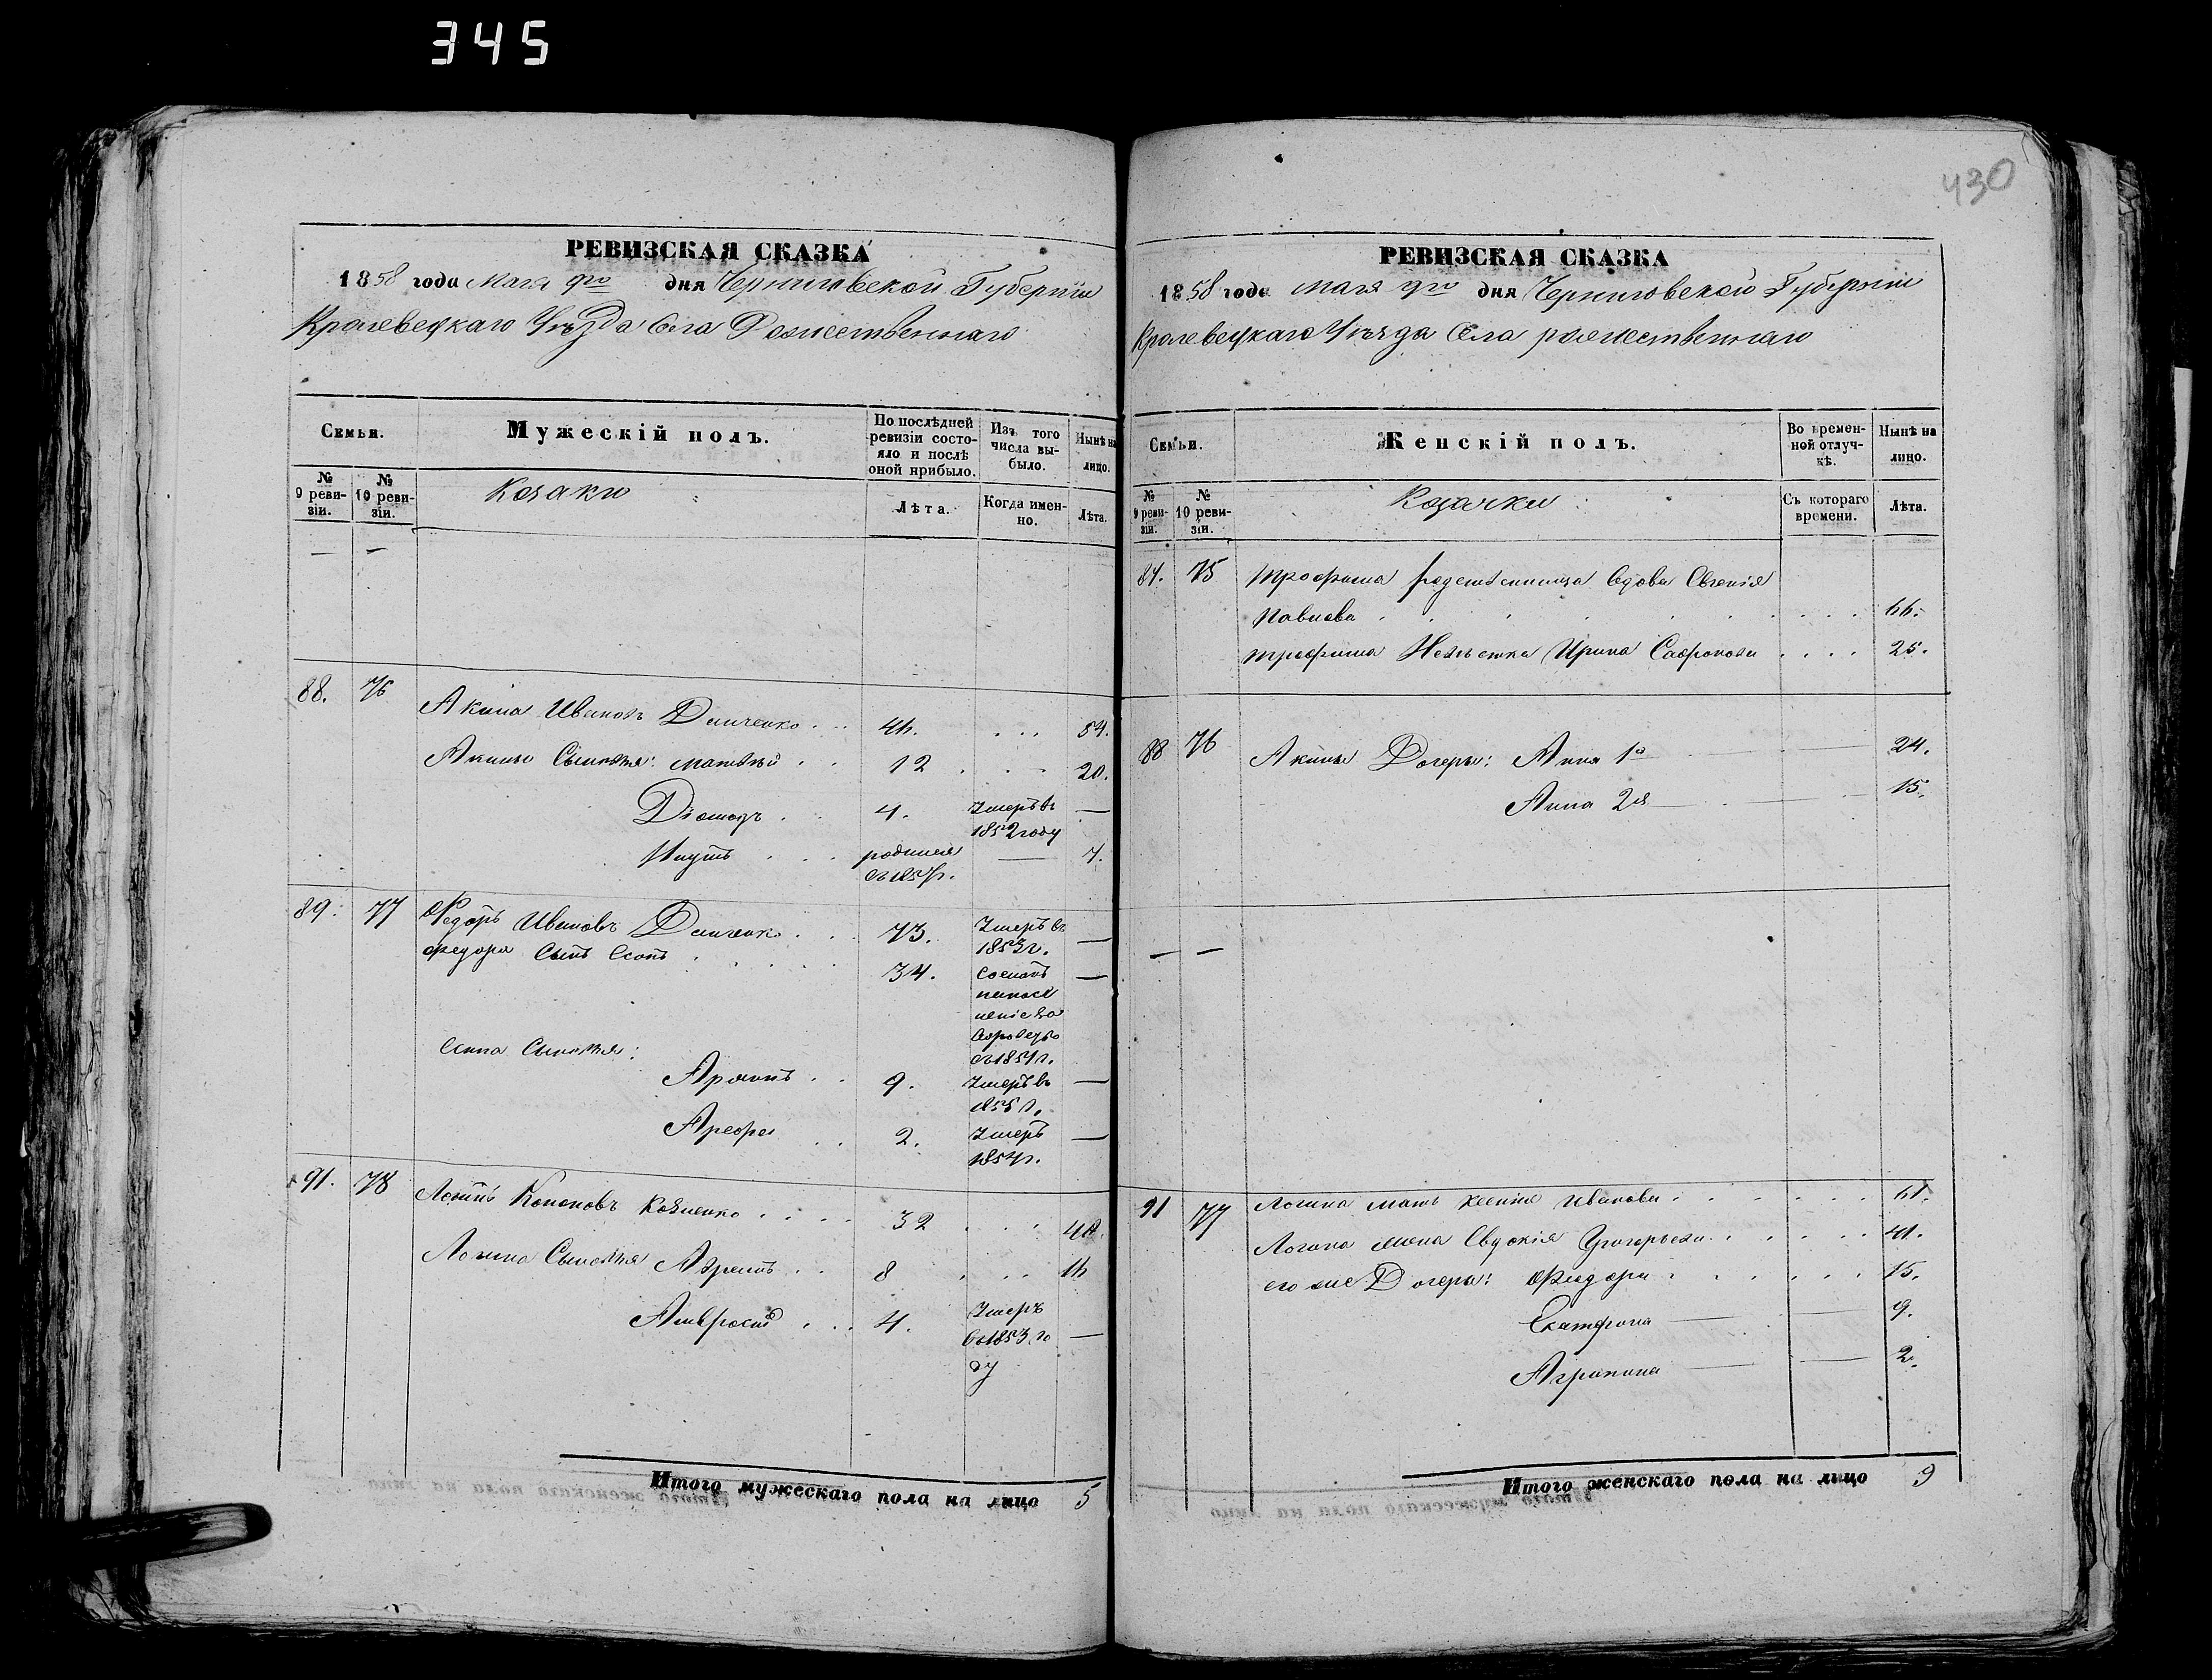 345
430
РЕВИЗСКАЯ СКАЗКА
1858 года Мая 9го дня Черниговской Губернии
Кролевецкаго Уѣзда Села Рожественнаго
Семьи.
Мужескій полъ.
По послѣдней ревизіи состояло и послѣ оной прибыло.
Изъ того числа выбыло.
Нынѣ на лицо.
№ 9 ревизіи.
№ 10 ревизіи.
Козаки
Лѣта.
Когда именно.
Лѣта.
— —
88. 76 Акима Ивановъ Данченко 46. 54.
Акима Сыновья: Матвѣй 12 20.
Діомидъ 4. Умеръ въ —
1852 году
родился — 7.
89. 77 Федоръ Ивановъ Данченко 73. Умеръ въ —
1853 г.
Федора Сынъ Есипъ 34. —
Есипа Сыновья:
9. Умеръ въ —
1855 г.
Арефа 2. Умеръ —
91. 78 Логинъ Кононовъ 32 40.
Логина Сыновья 8 16
Амвросій 4. Умеръ
въ 1853 го —
ду
Итого мужескаго пола на лицо 5
РЕВИЗСКАЯ СКАЗКА
1858 года Мая 9го дня Черниговской Губерніи
Кролевецкаго Уѣзда Села рожественнаго
Семьи.
Женскій полъ.
Во временной отлучкѣ.
Нынѣ на лицо.
№ 9 ревизіи.
№ 10 ревизіи.
Козачки
Съ котораго времени.
Лѣта.
87. 75 Трофима вдова Евгенія
Павлова 66.
Трофима Невѣстка Ирина 25.
88 76 Акима Дочери: Анна 1я 24.
Анна 2я 15.
— —
91 77 Логина мать Ксенія Иванова 61.
Логина жена Евдокія Григорьева 41.
его же Дочери: Федора 15.
Екатерина 9.
Агрипина 2.
Итого женскаго пола на лицо 9